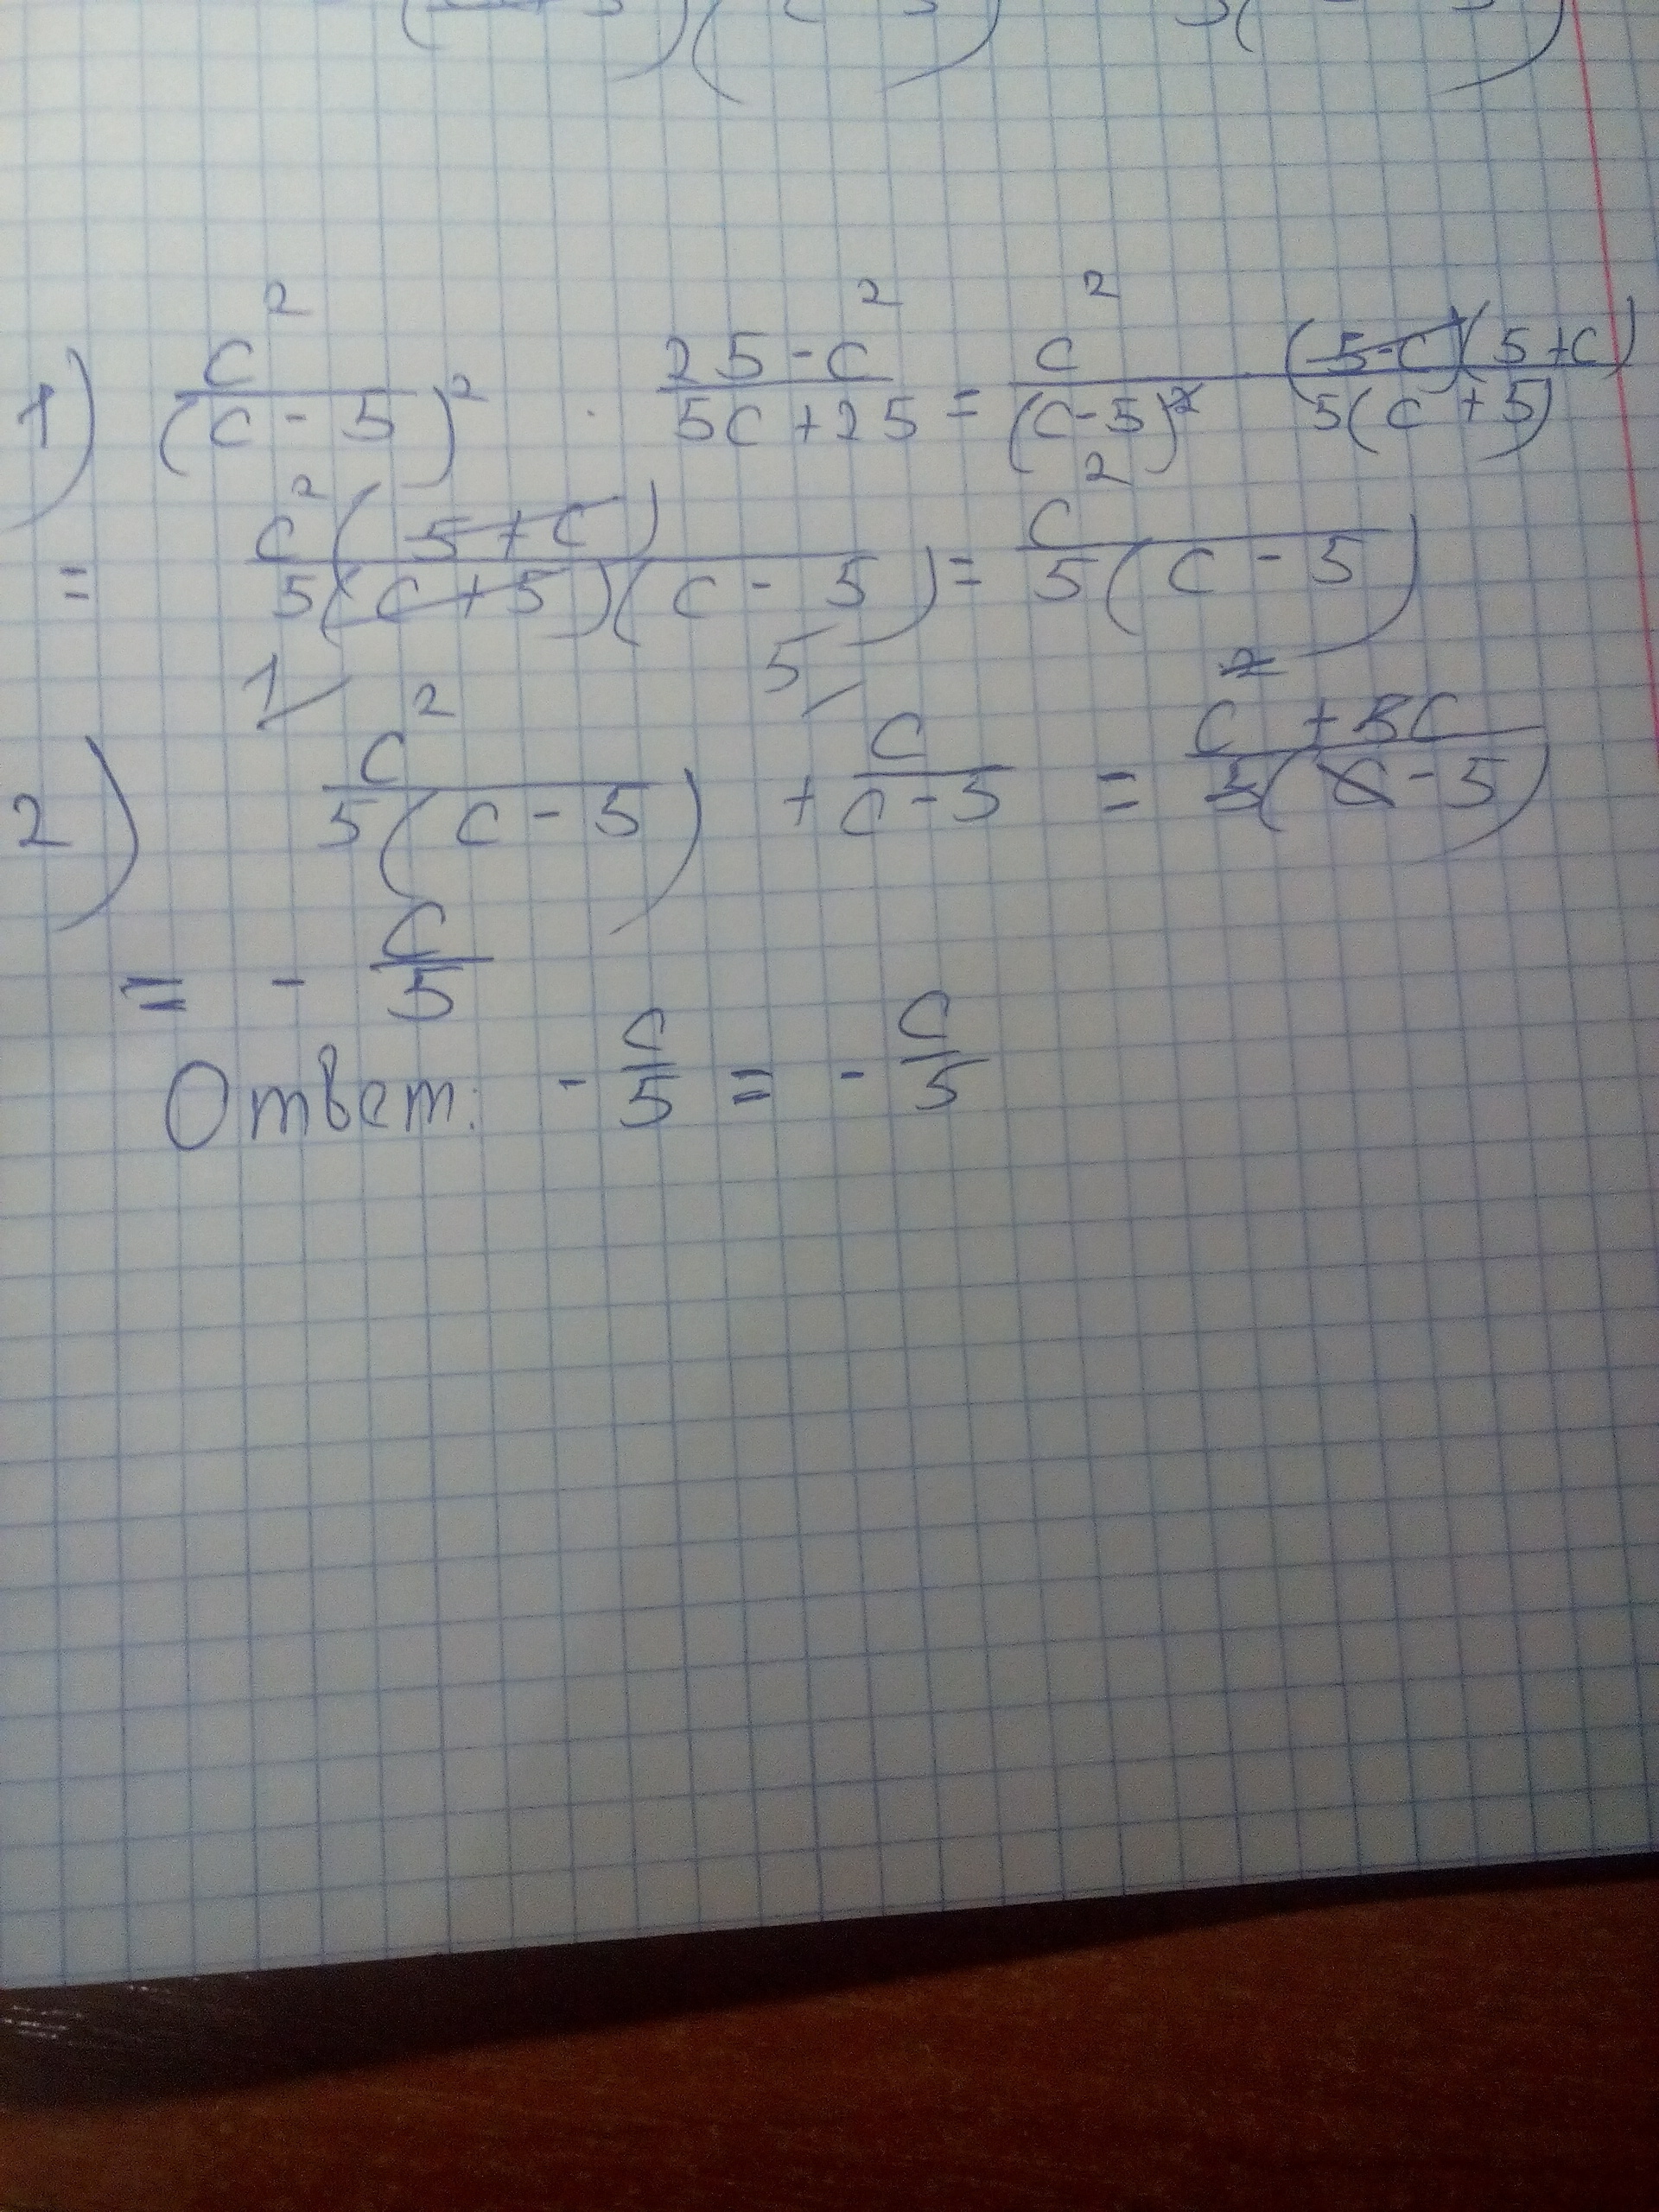 1) c²/(c-5)² · 25-c²/5c+25 = c²/(c-5)² · (5-c)(5+c)/5(c+5)
= c²(5+c)/5(c+5)(c-5) = c²/5(c-5)
2) c²/5(c-5) + c/c-5 = c²+5c/5(c-5)
= - c/5
Ответ: - c/5 = - c/5